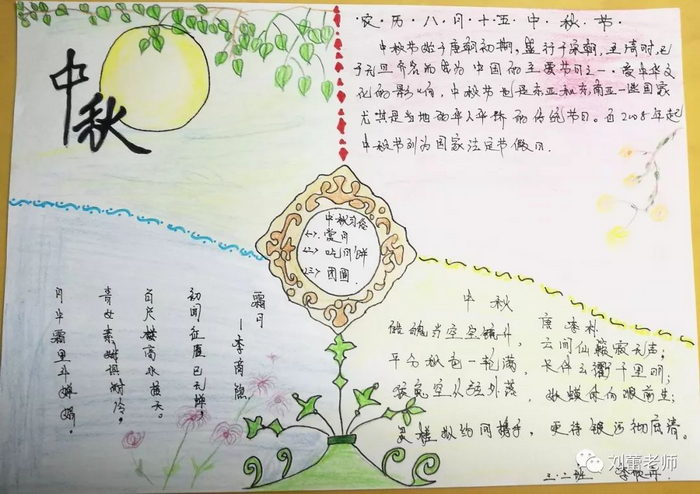 中秋
·农·历·八·月·十·五·中·秋·节·
中秋节始于唐朝初期，盛行于宋朝，至清时，已
于元旦齐名而成为中国的主要节日之一。受中华文
化的影响，中秋节也是东亚和东南亚一些国家
尤其是当地的华人华侨的传统节日。自2008年起
中秋节列为国家法定节假日.
中秋习俗
<一>. 赏月
<二>. 吃月饼
<三>. 团圆
霜月
—李商隐
初闻征雁已无蝉，
百尺楼高水接天。
青女素娥俱耐冷，
月中霜里斗婵娟。
中秋
唐 李朴
皓魄当空宝镜升， 云间仙籁寂无声；
平分秋色一轮满， 长伴云衢千里明；
狡兔空从弦外落， 妖蟆休向眼前生；
灵槎拟约同携手， 更待银河彻底清。
三.二班
刘蕾老师